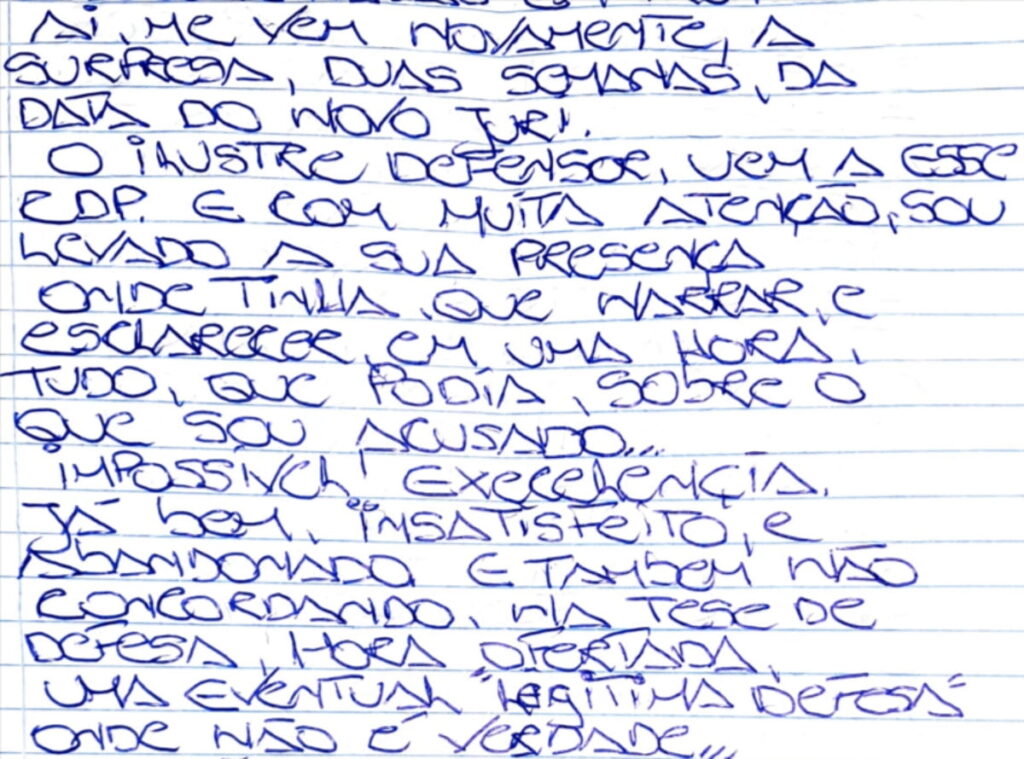 Ai, me vem novamente, a
surpresa, duas semanas, da
data do novo juri.
O ilustre defensor, vem a esse
CDP. e com muita atenção, sou
levado a sua presença
onde tinha, que narrar, e
esclarecer, em uma hora,
tudo, que podia, sobre o
que sou acusado...
impossivel! Excelencia.
Já bem, insatisfeito, e
abandonado e também não
concordando, na tese de
defesa, hora ofertada,
uma eventual "legitima defesa"
onde não é verdade...